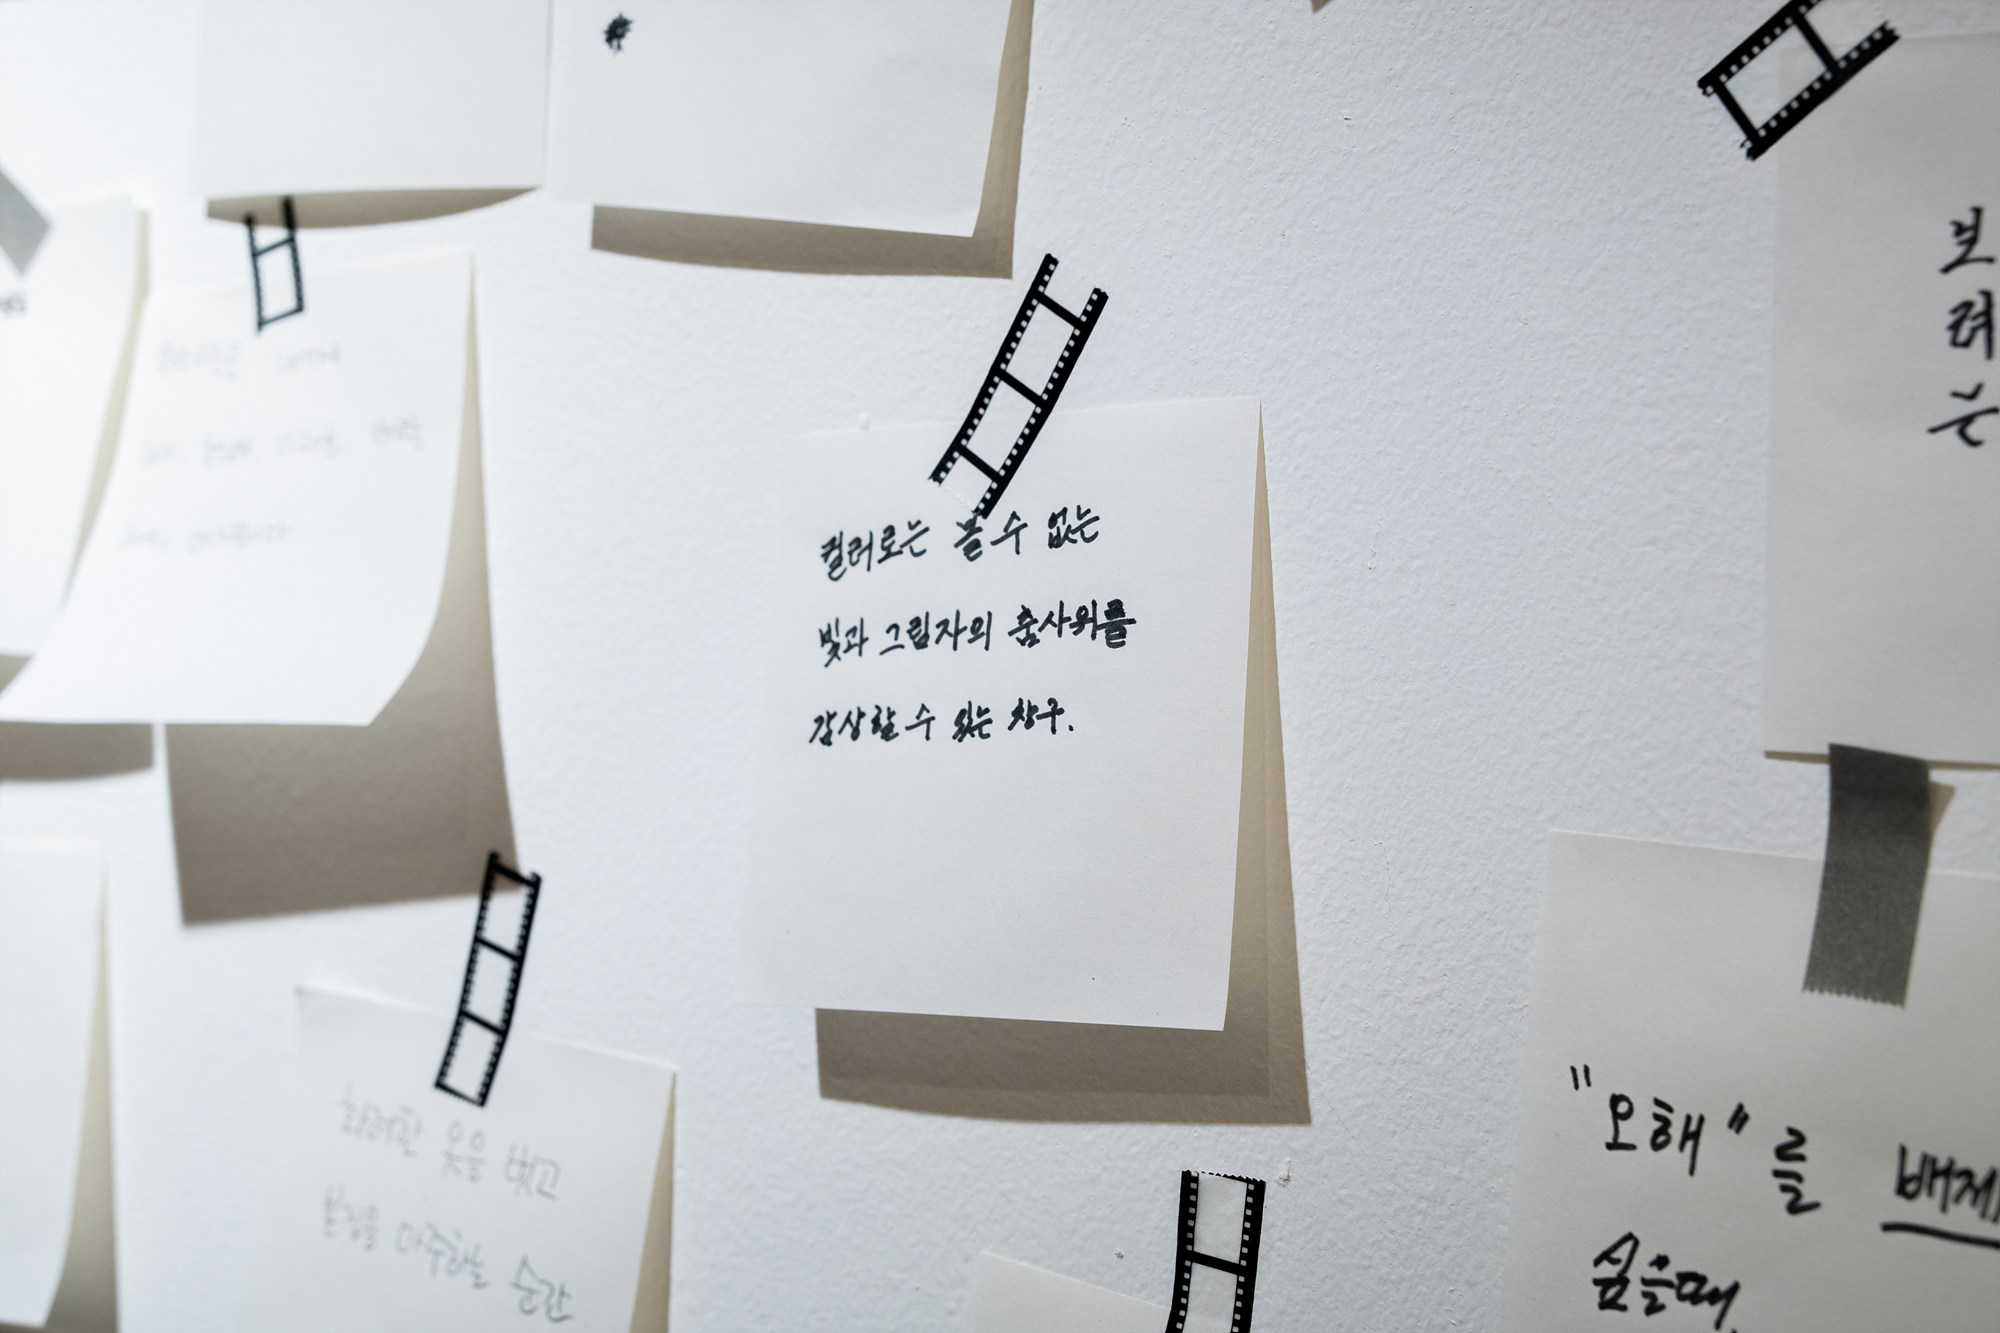 컬러로는 볼 수 없는
빛과 그림자의 춤사위를
감상할 수 있는 창구.
화려한 옷을 벗고
본질을 마주하는 순간
보
려
는
"오해"를 배제
싶을때,